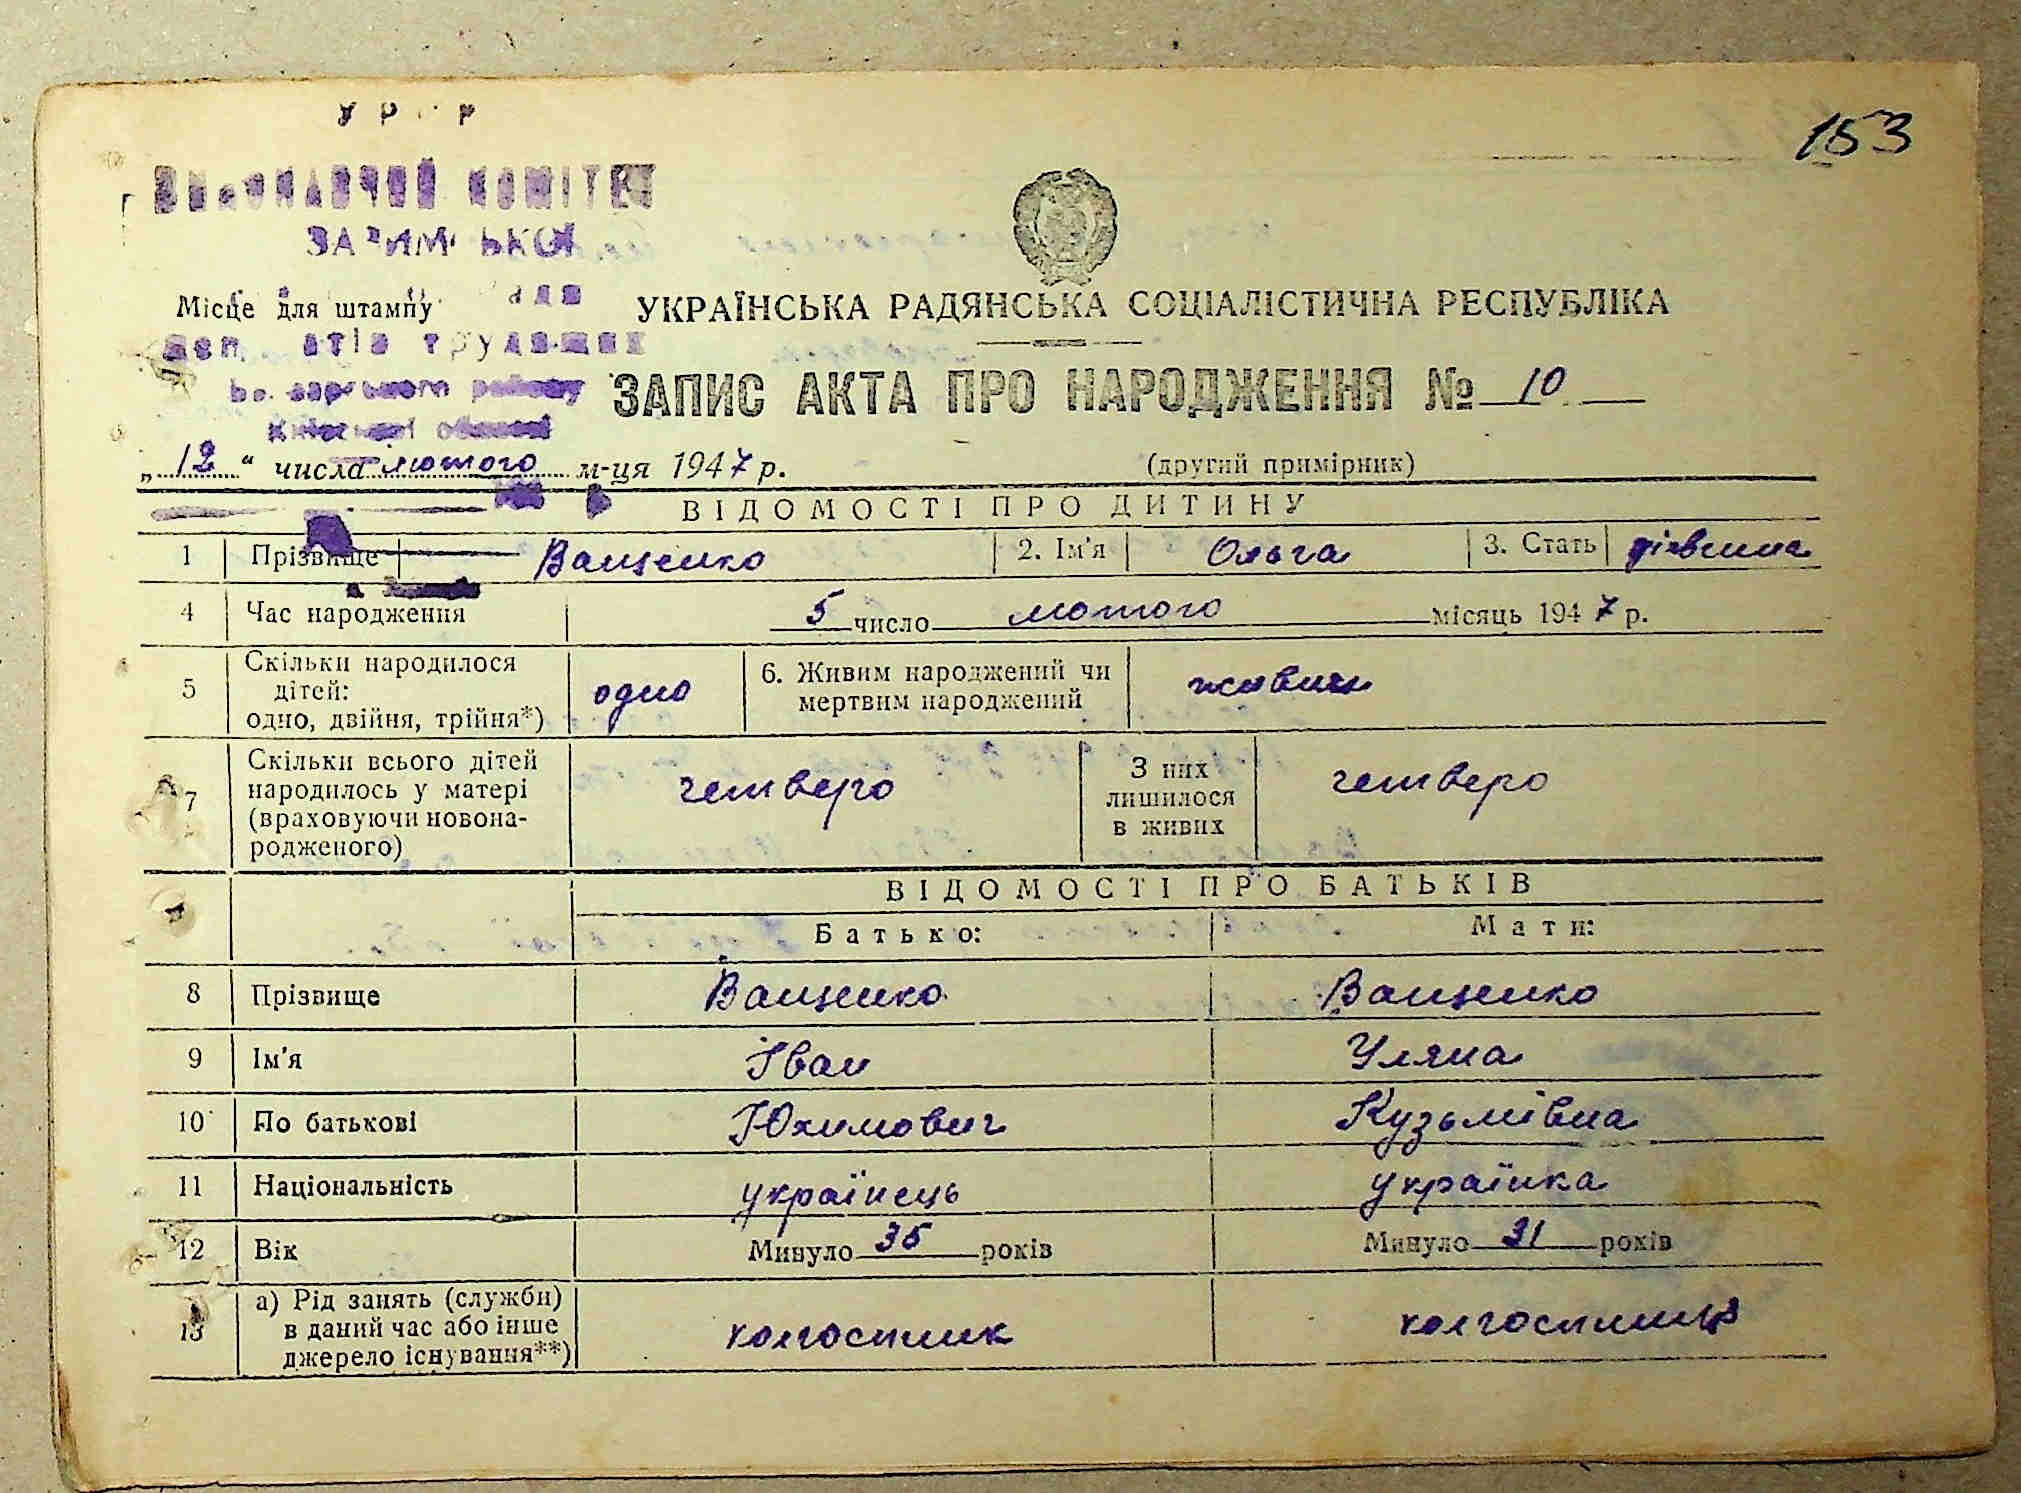 153
ВИКОНАВЧИЙ КОМІТЕТ
Місце для штампу
УКРАЇНСЬКА РАДЯНСЬКА СОЦІАЛІСТИЧНА РЕСПУБЛІКА
депутатів трудящих
району
ЗАПИС АКТА ПРО НАРОДЖЕННЯ № 10
Київської області
„12“ числа лютого м-ця 1947 р. (другий примірник)
ВІДОМОСТІ ПРО ДИТИНУ
1 Прізвище Ващенко 2. Ім'я Ольга 3. Стать дівчина
4 Час народження 5 число лютого місяць 1947 р.
5 Скільки народилося дітей: одно, двійня, трійня*) одно 6. Живим народжений чи мертвим народжений живим
7 Скільки всього дітей народилось у матері (враховуючи новона-родженого) четверо З них лишилося в живих четверо
ВІДОМОСТІ ПРО БАТЬКІВ
Батько: Мати:
8 Прізвище Ващенко Ващенко
9 Ім'я Іван Уляна
10 По батькові Юхимович Кузьмівна
11 Національність українець українка
12 Вік Минуло 35 років Минуло 31 років
13 а) Рід занять (служби) в даний час або інше джерело існування**) колгоспник колгоспниця